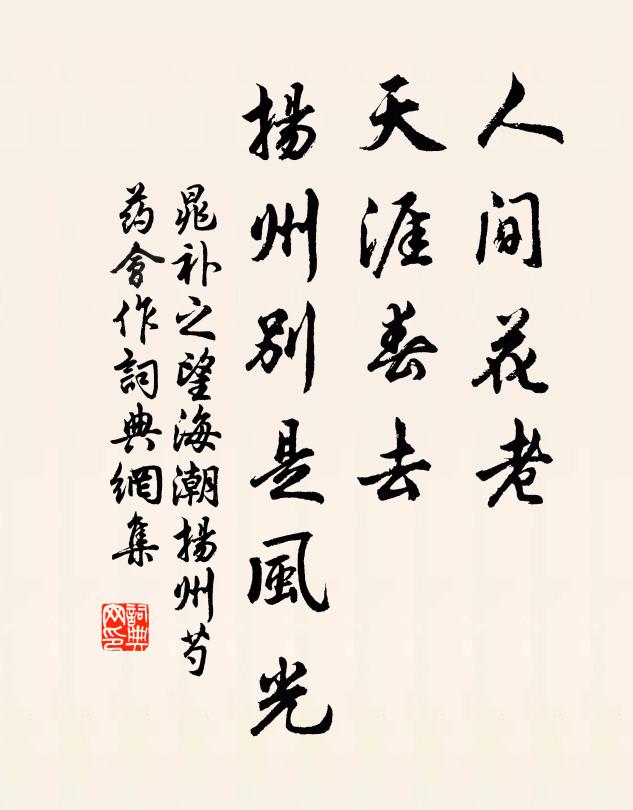 人間花老
天涯春去
揚州別是風光
晁補之望海潮揚州芍
药會作詞典網集
詞典
网印